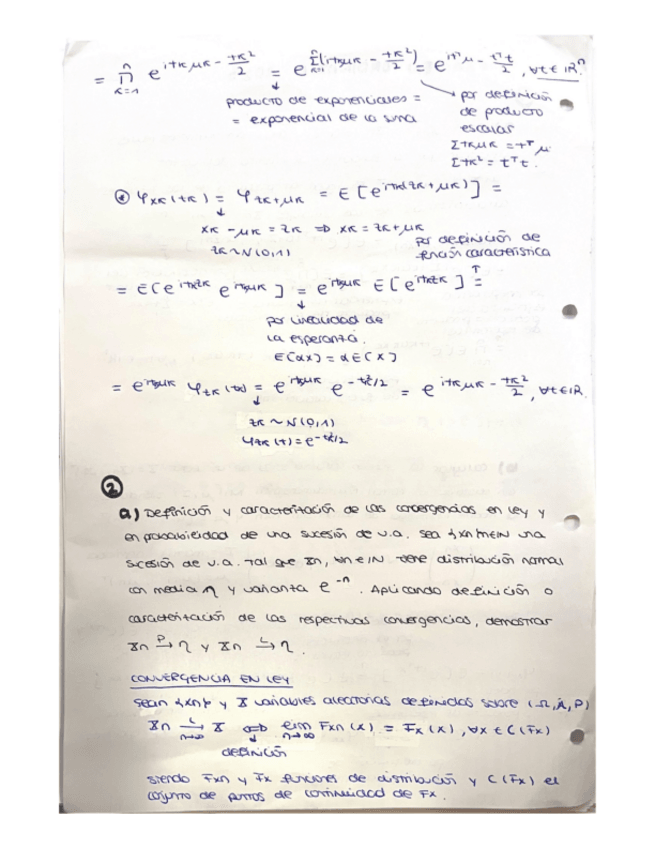 = ∏_{k=1}^{n} e^{itkμk - tk²/2} = e^{Σ_{k=1}^{n}(itkμk - tk²/2)} = e^{itᵀμ - tᵀt/2}, ∀t∈ℝⁿ.
producto de exponenciales =
= exponencial de la suma
por definición
de producto
escalar
Σtkμk = tᵀμ
Σtk² = tᵀt.
⊛ φxk(tk) = φzk+μk = E[e^{itk(zk+μk)}] =
xk - μk = zk ⇒ xk = zk+μk
zk~N(0,1)
por definición de
función característica
= E[e^{itkzk} e^{itkμk}] = e^{itkμk} E[e^{itkzk}] =
por linealidad de
la esperanza.
E[αx] = αE[x]
= e^{itkμk} φzk(tk) = e^{itkμk} e^{-tk²/2} = e^{itkμk - tk²/2}, ∀tk∈ℝ.
zk ~ N(0,1)
φzk(t) = e^{-tk²/2}
②
a) Definición y caracterización de las convergencias en ley y
en probabilidad de una sucesión de v.a. sea {xn}n∈ℕ una
sucesión de v.a. tal que Xn, ∀n∈ℕ tiene distribución normal
con media η y varianza e⁻ⁿ. Aplicando definición o
caracterización de las respectivas convergencias, demostrar
Xn →ᴾ η y Xn →ᴸ η.
CONVERGENCIA EN LEY
sean {xn} y X variables aleatorias definidas sobre (Ω, A, P)
Xn →ᴸ_{n→∞} X ⇔ lim_{n→∞} Fxn(x) = Fx(x), ∀x ∈ C(Fx)
definición
siendo Fxn y Fx funciones de distribución y C(Fx) el
conjunto de puntos de continuidad de Fx.